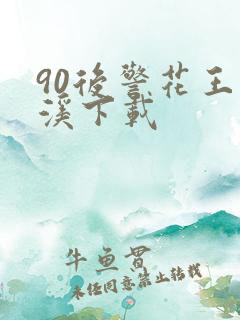 90後警花王
溪下載
牛魚貫
未经同意禁止转载